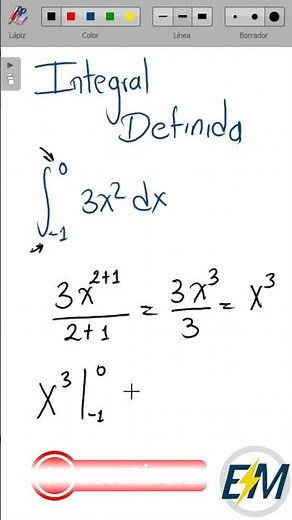 Lápiz Color Línea Borrador
Integral
Definida
∫₋₁⁰ 3x² dx
3x²⁺¹/2+1 = 3x³/3 = x³
x³|₋₁⁰ +
EM